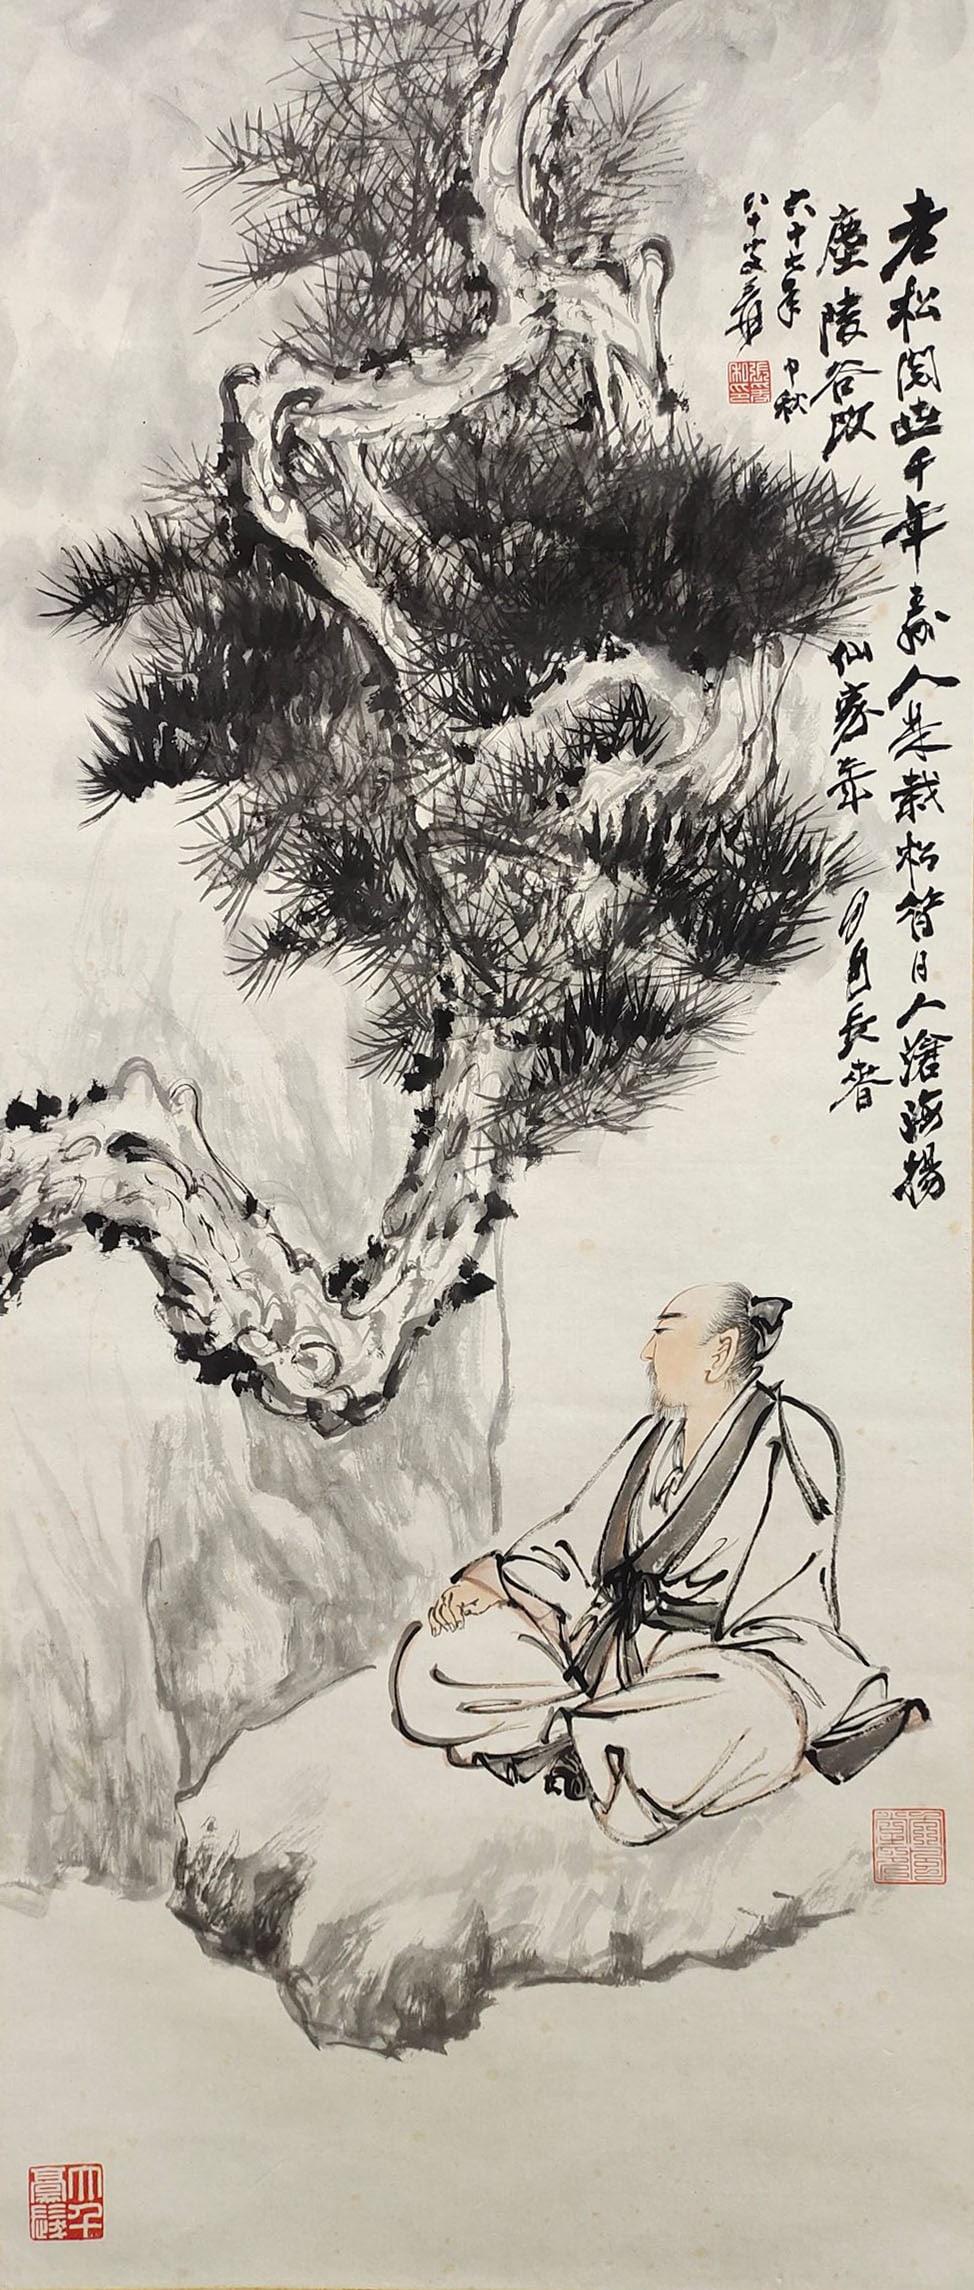 老松閱世千年壽人是栽松昔日人滄海揚
塵陵谷改仙家年月自長春
六十七年中秋
八十叟爰
大千豪髮